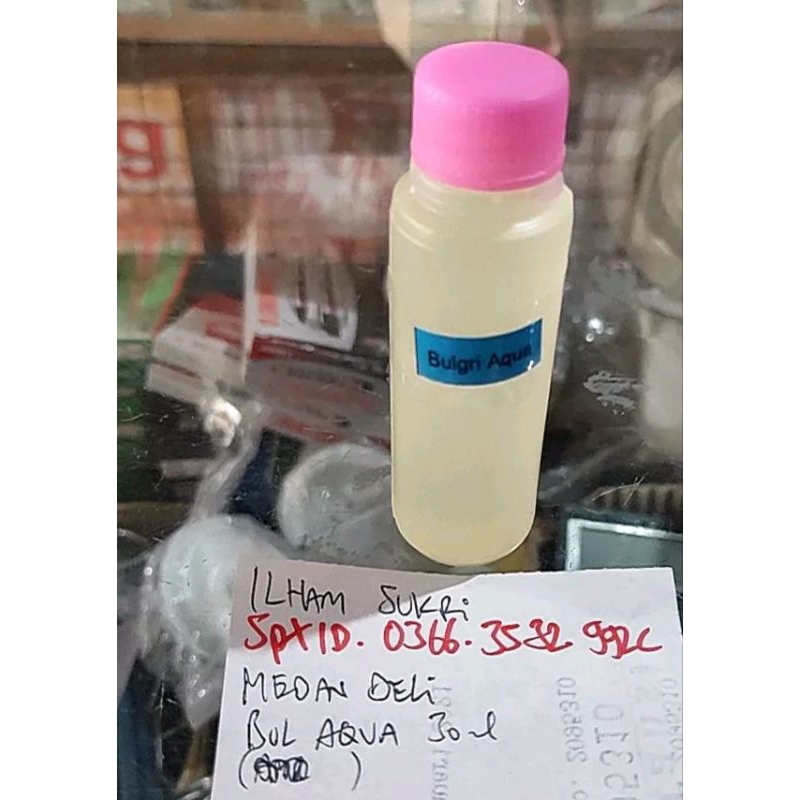 Bulgri Aqua
ILHAM SUKRi
SPXID. 0366.3532 992C
MEDAN DELi
BUL AQUA 30 ml